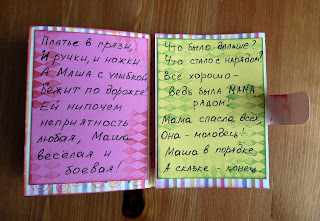 Платье в грязи,
И ручки, и ножки
А Маша с улыбкой
Бежит по дорожке.
Ей нипочём
неприятность
любая, Маша
весёлая и
боевая!
Что было дальше?
Что стало с нарядом?
Всё хорошо -
Ведь была МАМА
рядом!
Мама спасла всех,
Она - молодец!
Маша в порядке,
А сказке - конец